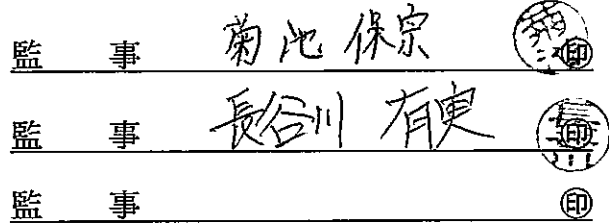 監事 菊池保宗 ㊞
監事 長谷川有実 ㊞
監事 ㊞